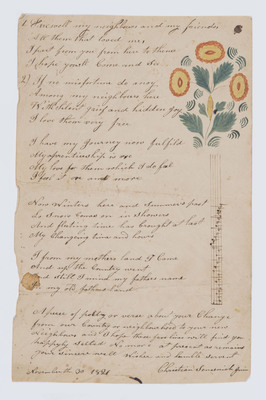 1 Farewell my neighbours and my friends
All them that loved me,
I part from you from her to thence
I hope you'll come and see
2) If no misfortune do anoy
Among my neighbours here
With silent grief and hidden joy
I love them very freu
I have my Journey now fulfild
My aprentiship is ore
My love for them which I do fal
I feel it ore and more
Now Winters here and Summer's past
do Snow Comes on in Showers
And fleeting time has brought at last
My Changing time and hours
I from my mothers land I Came
And up the Country went
And still I mind my fathers name
my old fathers land
A piece of poetry or verse about your Change
from our Country or neighbourhood to your new
Neighbours and I hope these few lines will find you
happyly Setled No more at present but remains
your sincere well wisher and humble servant
November th 30th 1821
Christian